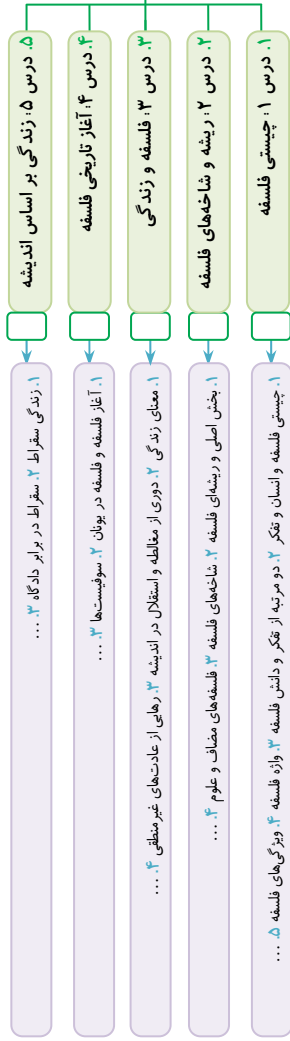 ۱. درس ۱: چیستی فلسفه
۱. چیستی فلسفه و انسان و تفکر ۲. دو مرتبه از تفکر و دانش فلسفه ۳. واژه فلسفه ۴. ویژگی‌های فلسفه ۵. ...
۲. درس ۲: ریشه و شاخه‌های فلسفه
۱. بخش اصلی و ریشه‌ای فلسفه ۲. شاخه‌های فلسفه ۳. فلسفه‌های مضاف و علوم ۴. ...
۳. درس ۳: فلسفه و زندگی
۱. معنای زندگی ۲. دوری از مغالطه و استقلال در اندیشه ۳. رهایی از عادت‌های غیرمنطقی ۴. ...
۴. درس ۴: آغاز تاریخی فلسفه
۱. آغاز فلسفه و فلسفه در یونان ۲. سوفیست‌ها ۳. ...
۵. درس ۵: زندگی بر اساس اندیشه
۱. زندگی سقراط ۲. سقراط در برابر دادگاه ۳. ...